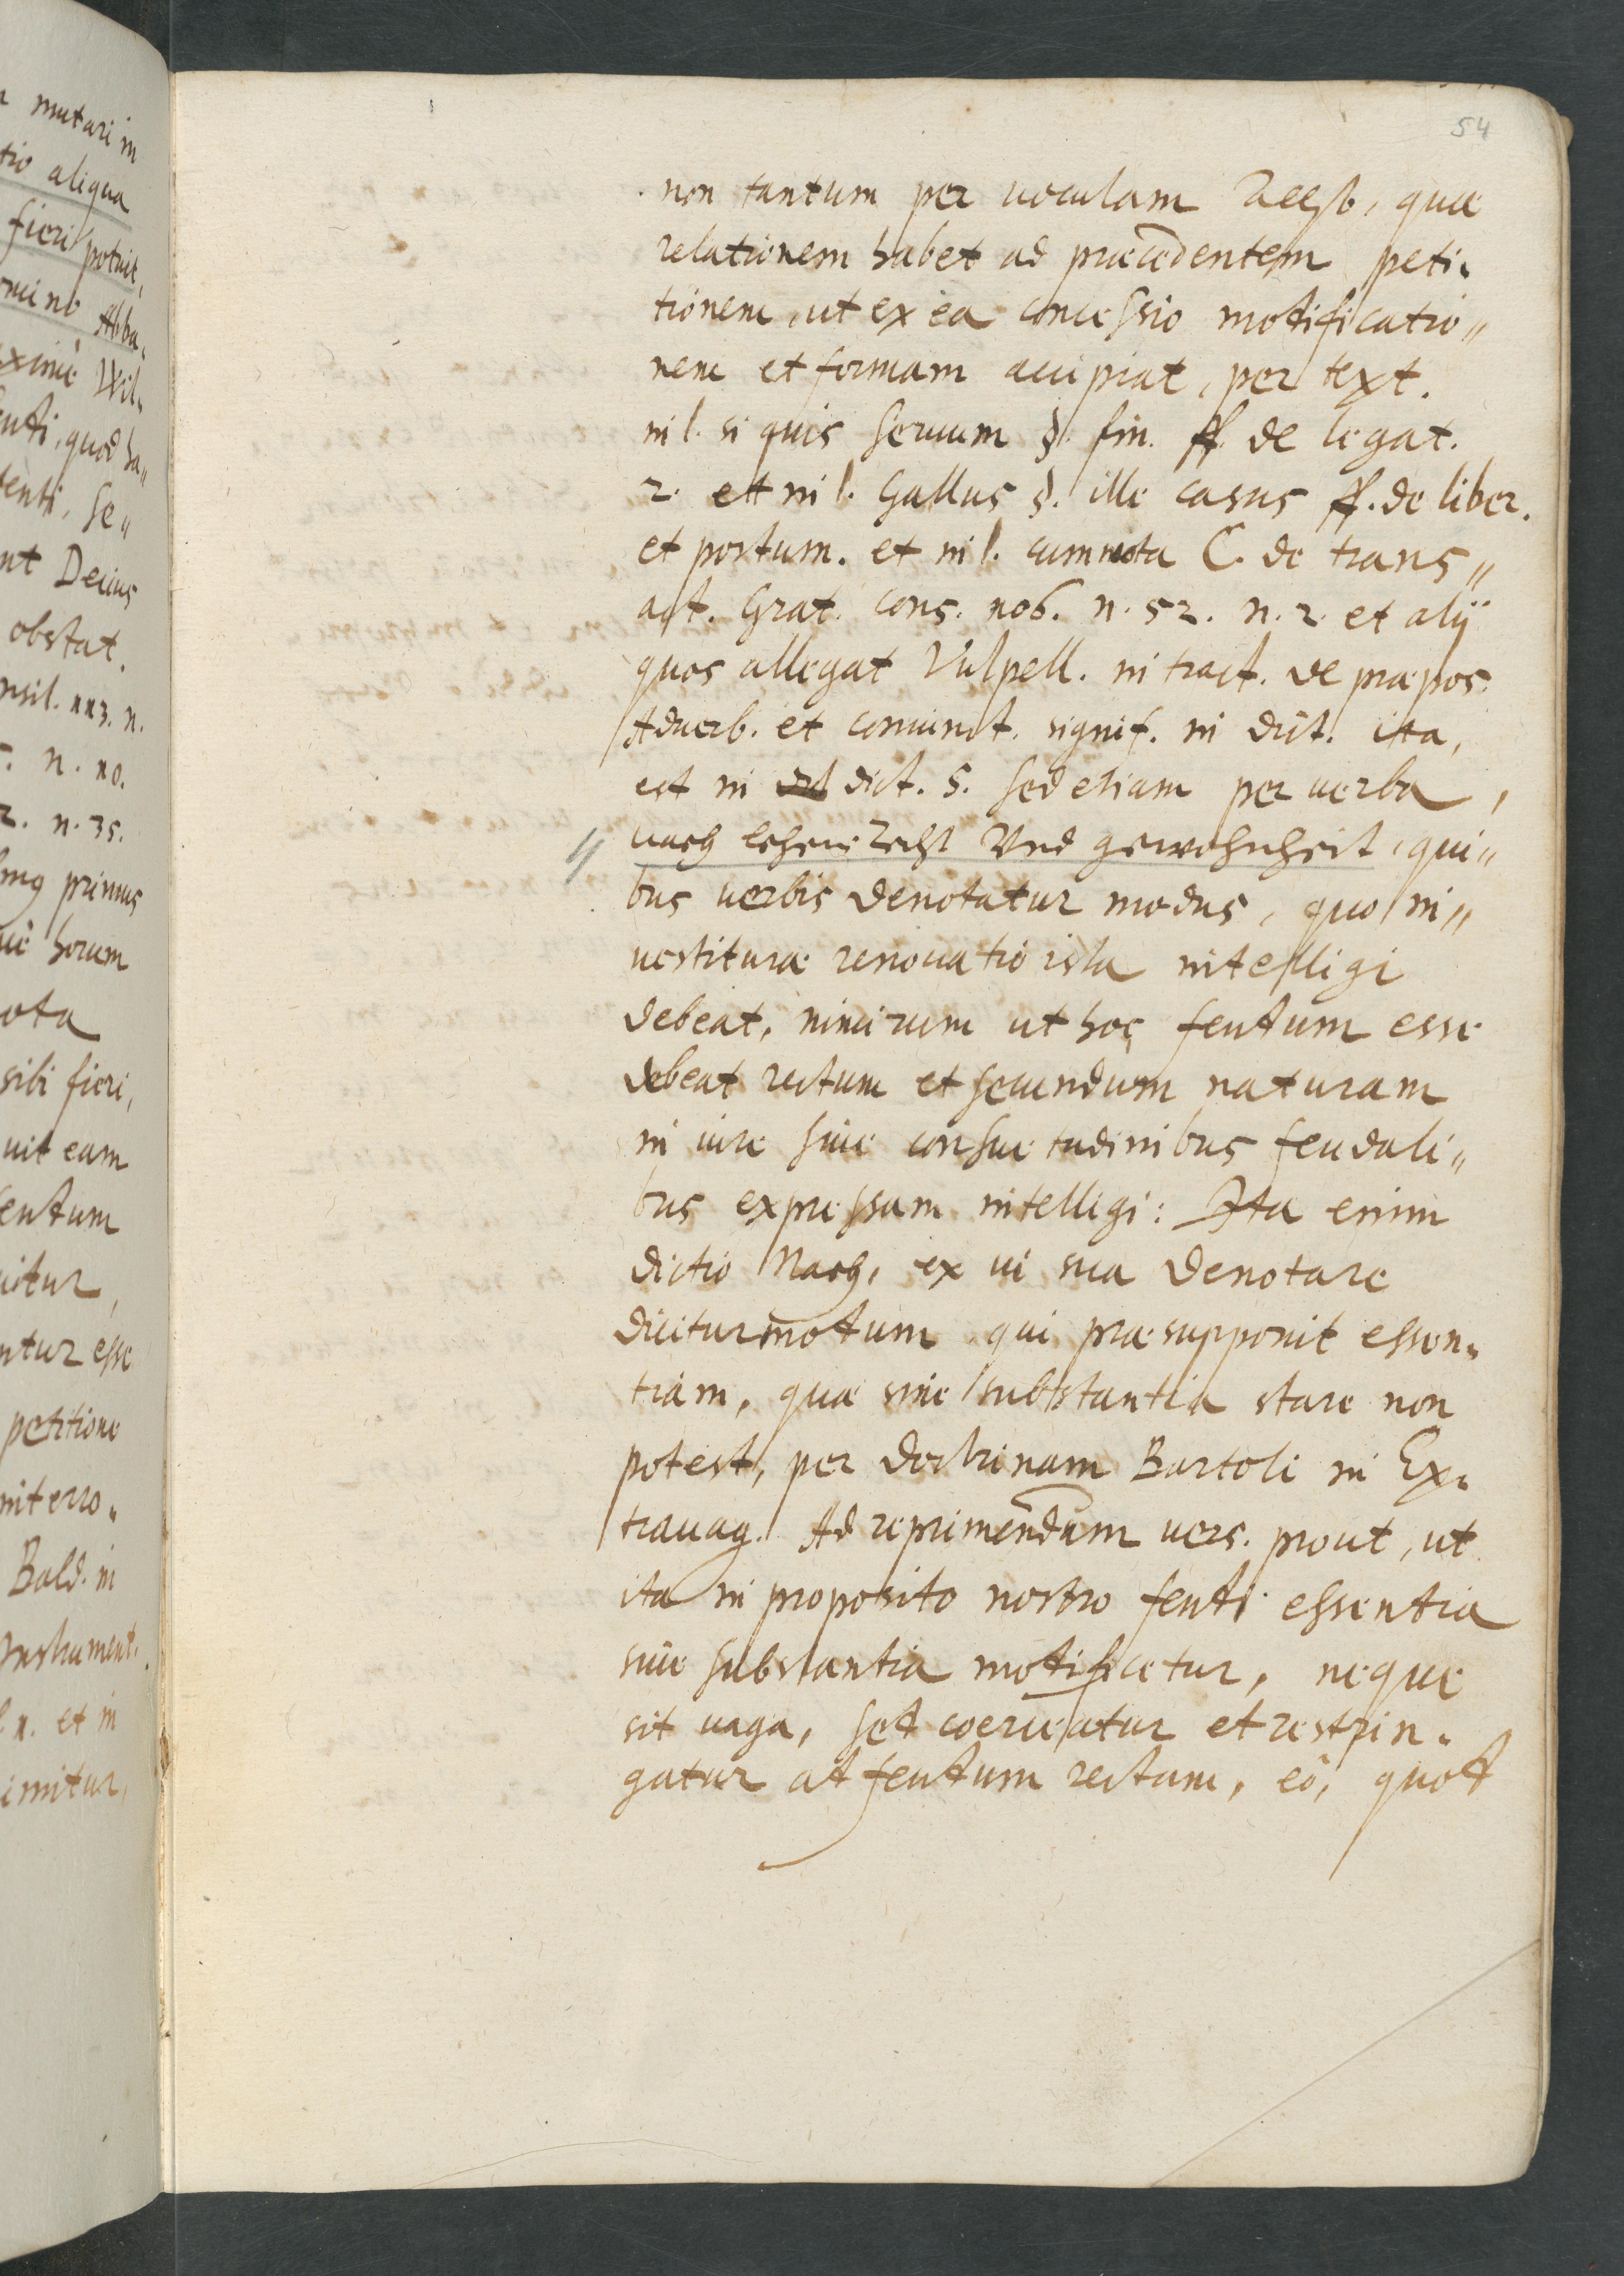 54
non tantum per uoculam Aellß, quæ
relationem habet ad præcedentem peti„
tionem, ut ex ea concessio motificatio„
nem et formam accipiat, per text.
in l. si quis seruum §. fin. ff. de legat.
2. ett in l. Gallus §. ille casus ff. de liber.
et postum. et in l. cum mota C. de trans„
act. Grat. cons. 106. n. 52. n. 2. et alij
quos allegat Vulpell. in tract. de præpos.
Aduerb. et coniunct. signif. in dict. ita,
est in dict. 5. sed etiam per uerba,
nach lehenrecht Vnd gewohnheit, qui„
bus uerbis denotatur modus, quo in„
uestituræ renouatio ista intelligi
debeat, nimirum ut hoc feutum esse
debeat rectum et secundum naturam
in iure siue consuetudinibus feudali„
bus expressam intelligi: Ita enim
dictio Nach, ex ui sua denotare
dicitur motum qui præsupponit essen„
tiam, quæ sine substantia stare non
potest, per doctrinam Bartoli in Ex„
trauag. Ad reprimendam uers. prout, ut
ita in proposito nostro feuti essentia
siue substantia motificetur, neque
sit uaga, set coerceatur et restrin„
gatur at feutum rectum, eò, quot
mutari in
tio aliqua
fieri potuit,
Abba„
Wil„
quod ha„
Se„
Decius
obstat.
n. 10.
n. 35.
primus
horum
sibi fieri,
uit eam
petitione
Bald. in
Instrument.
et in